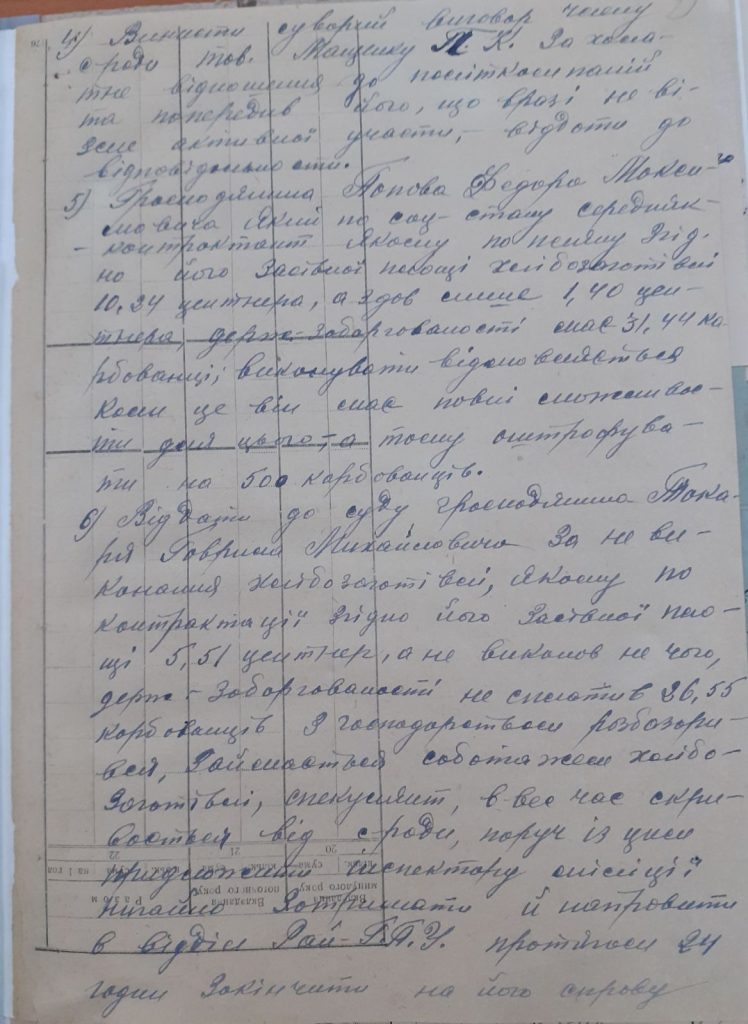 4) Винисти суворий виговор члену
с-ради тов. Мащенку П. К. За хала-
тне відношення до посівткомпаній
та попередив його, що вразі не ві-
зме активної участи, – віддоти до
відповідальности.
5) Гросподянина Попова Федора Макси-
мовича який по соц-стану середняк-
– контрактант якому по пляну Згід-
но його Засівної площі хлібозаготівлі
10,24 центнера, а здав лише 1,40 цен-
тнера, держ-заборгованості має 31,44 ка-
рбованці; виконувати відмовляється
коли це він має повні можливос-
ти для цього, а тому оштрофува-
ти на 500 карбованців.
6) Віддати до суду гросподянина Тока-
ря Гаврила Михайловича За не ви-
конання хлібозаготівлі, якому по
контрактації згідно його Засівної пло-
щі 5,51 центнер, а не виконов не чого,
держ-заборгованості не сплатив 26,55
карбованців З господарством розбазари-
вся, Займається соботажем хлібо-
заготівлі, спекулянт, в-вес час скри-
вається від с-ради, поруч із цим
предложити інспектору міліції
нигайно Зотримати й направити
в відділ Рай-Г.П.У. протягом 24
годин Закінчити на його справу
22
21
20
на 1 год
сума
кільк.
сума
Разом
Вкладання поточного року
минулого року